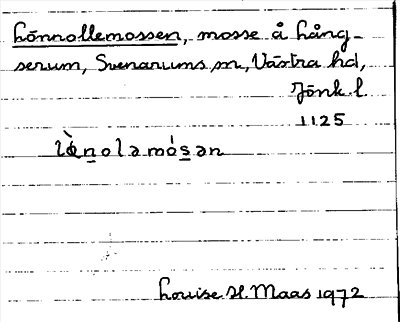 Lönnollemossen, mosse å Lång-
serum, Svenarums sn, Västra hd,
Jönk. l.
1125
lø̀nolamósan
Louise H. Maas 1972